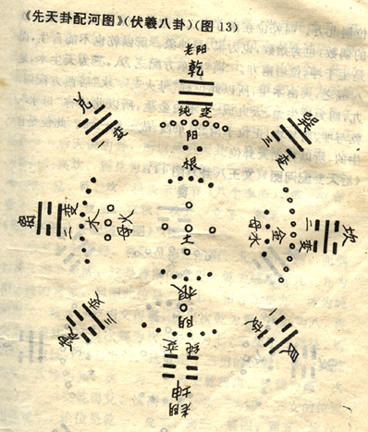 《先天卦配河图》(伏羲八卦)(图13)
老阳
乾
纯变
阳
根
兑
一变
巽
三变
离
二变
木
火母
土
金
水母
坎
二变
根
阴
震
三变
艮
一变
纯变
坤
老阴